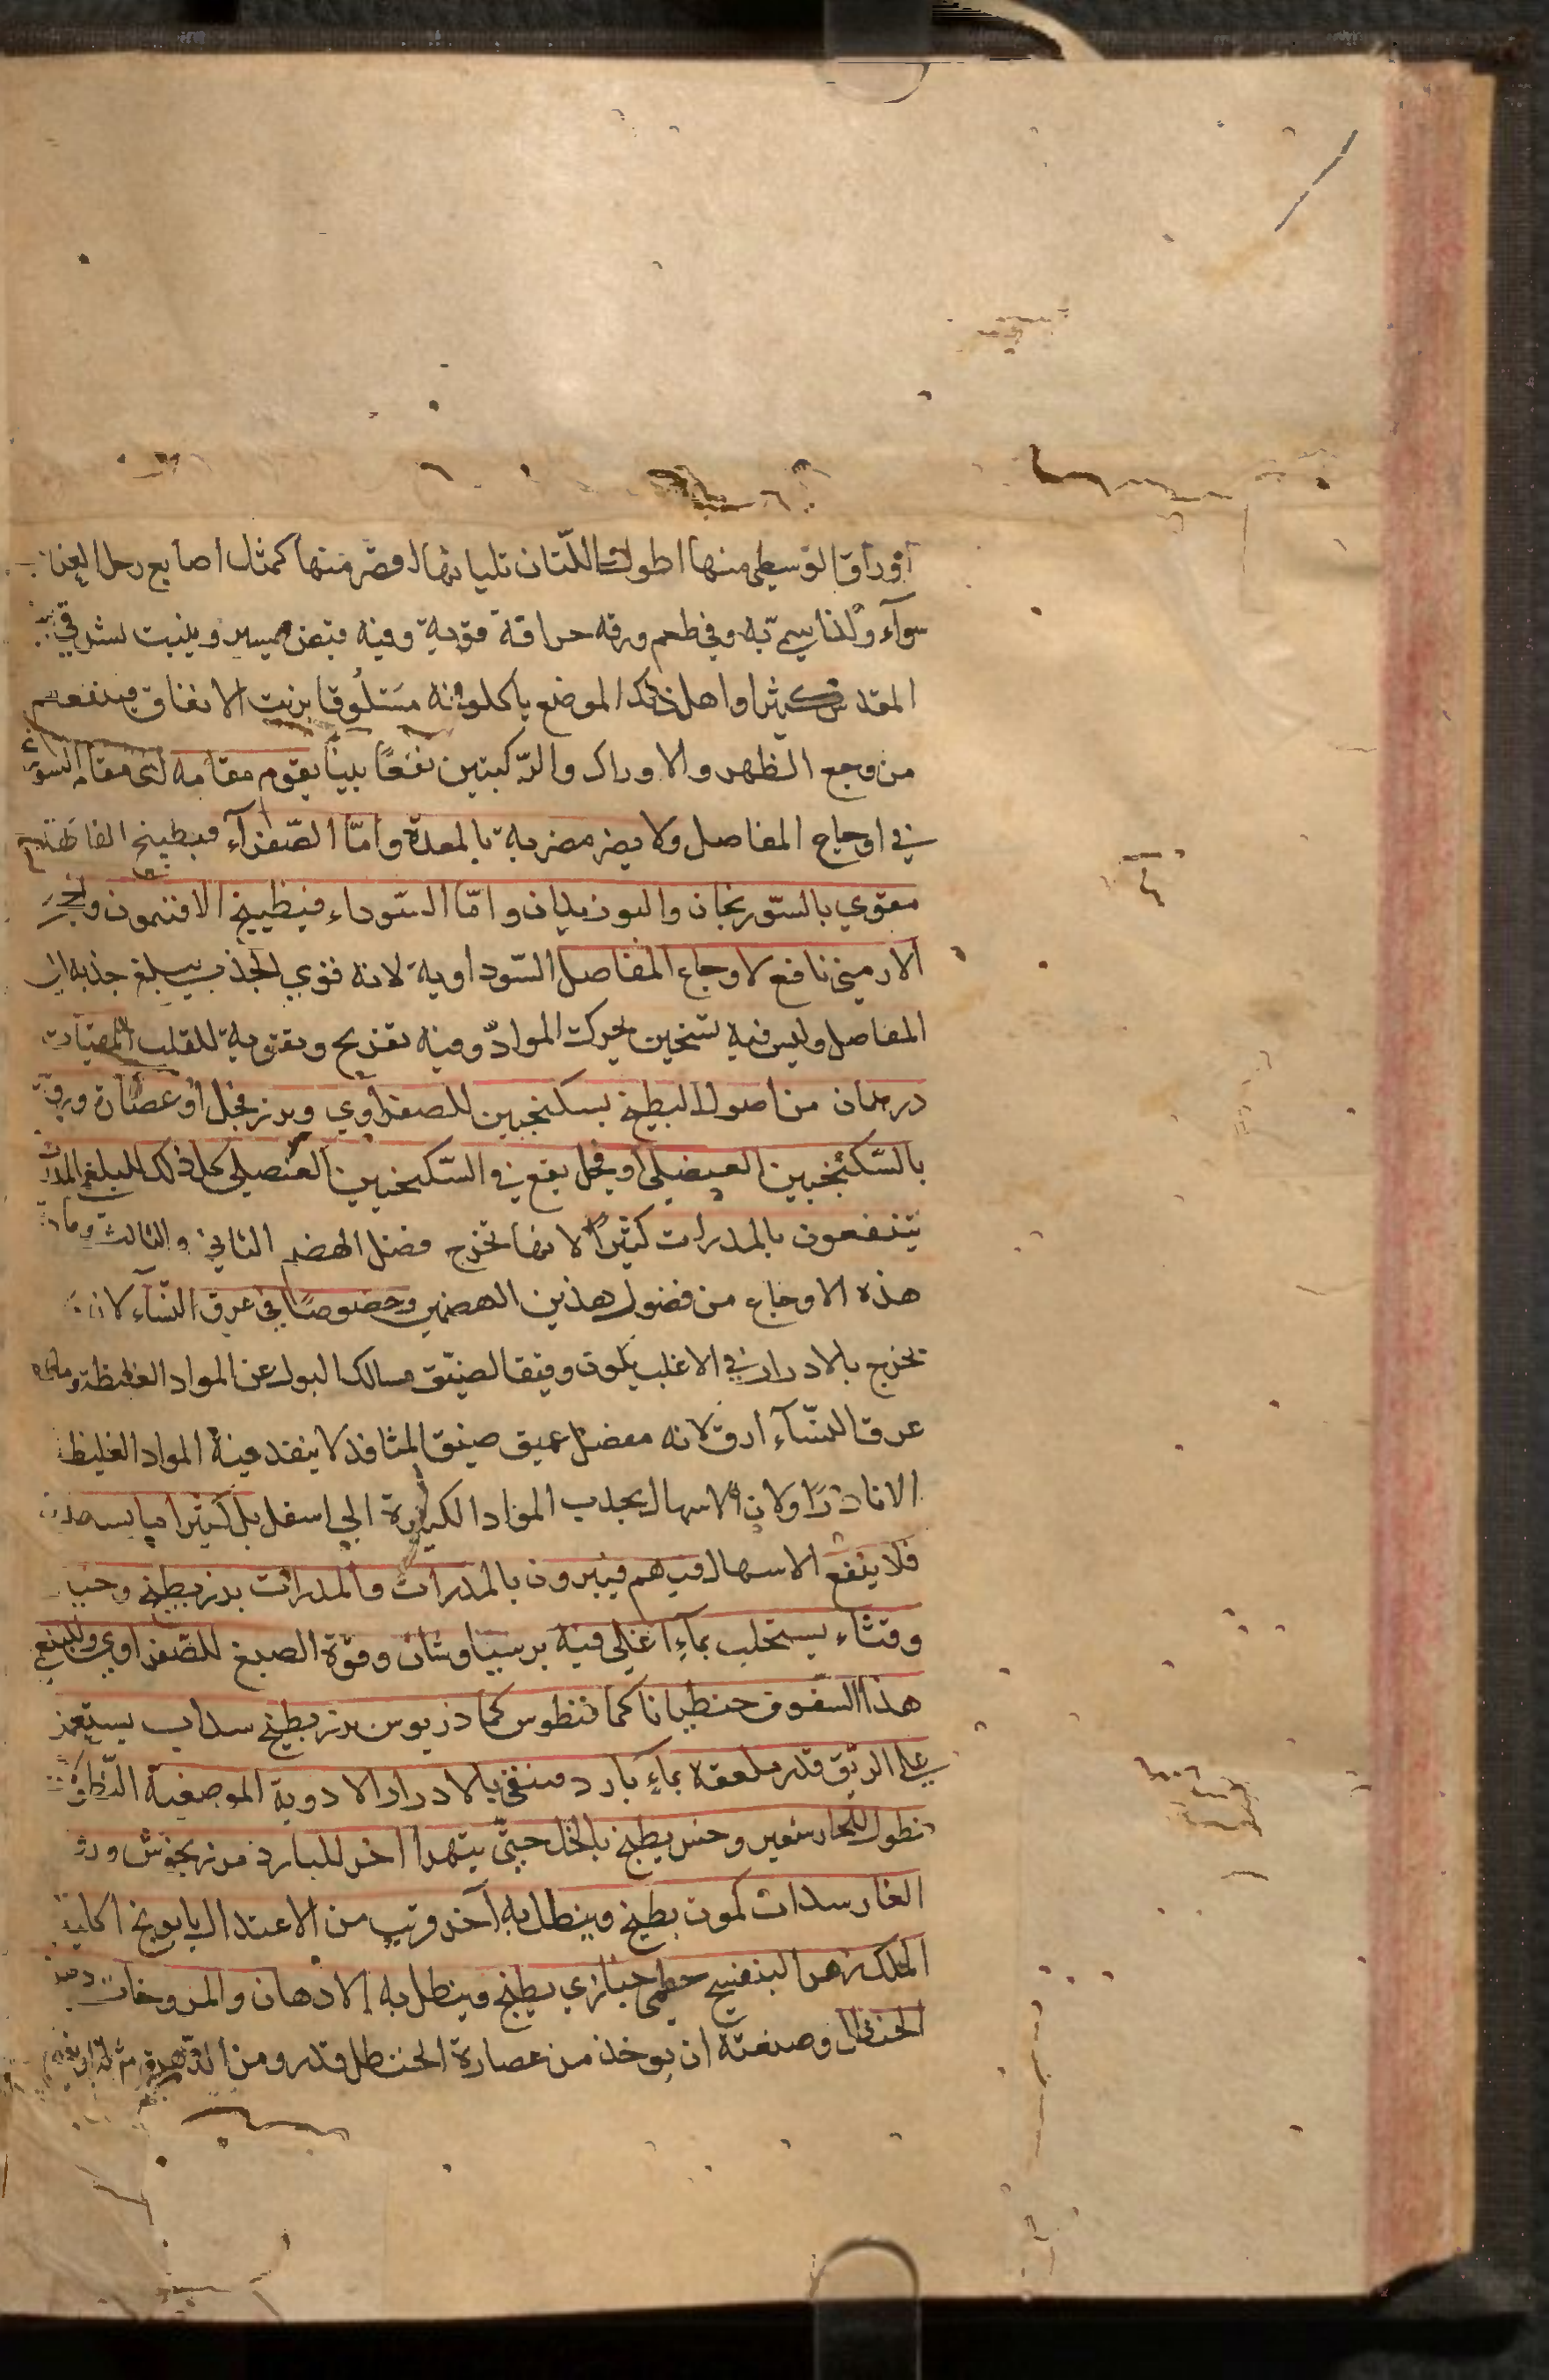 أوراق الوسطى منها اطول واللتان تليانها اقصر منها كمثل اصابع رجل
سوآء ولذا سمي به وفي طعم ورقه حرافة قوية وفيه قبض يسير وينبت
المقدس كثيرا واهل ذلك الموضع ياكلونه مسلوقا بزيت الانفاق فينفعهم
من وجع الظهر والاوراك والركبتين نفعًا بينًا يقوم مقامه لى مقام السور
في اوجاع المفاصل ولا يضر مضرته بالمعدة وامّا الصّفرآء فبطبيخ الفاكهة
مقوي بالسّورنجان والبوزيدان وامّا السّوداء فبطبيخ الافتيمون وحجر
الارميني نافع لاوجاع المفاصل السّوداوية لانه قوي الجذب يبلغ جذبه الى
المفاصل وليس فيه تسخين يحرك الموادّ وفيه تفريح وتقوية للقلب المقيآت
درهمان من اصول البطيخ بسكنجبين للصفراوي وبزر فجل او عصارة ورقه
بالسّكنجبين العنصلي او فجل يقع في السّكنجبين العنصلي كل ذلك للبلغم
ينتفعون بالمدرات كثيرًا لانها تخرج فضل الهضم الثاني والثالث ومادة
هذه الاوجاع من فضول هذين الهضمين وخصوصًا في عرق النسآء لان
يخرج بالادرار في الاغلب يكون رقيقا لضيق مسالك البول عن المواد الغليظة ومادة
عرق النسآء ارق لانه مفصل عميق ضيق المنافذ لا ينفذ فيه المواد الغليظ
الا نادرًا ولان الاسهال يجذب المواد الكثيرة الى اسفل بل كثيرا ما
فلا ينفع الاسهال فيهم فيبرون بالمدرات والمدرات بزر بطيخ وخيار
وقثاء يستحلب بمآء اغلي فيه برسياوشان وفوة الصبغ للصّفراوي وللبلغمي
هذا السفوف جنطيانا كمافيطوس كمادريوس بزر بطيخ سداب يستعمل
على الريق قدر ملعقة بمآء بارد فينقى بالادرار الادوية الموضعية
نطول للحار شعير وخس يطبخ بالخل حتّى يتهرا اخر للبارد مرزنجوش وورق
الغار سداب كمون يطبخ وينطل به آخر قريب من الاعتدال بابونج اكليل
الملك زهر البنفسج خطمي خبازي يطبخ وينطل به الادهان والمروخات دهن
الحنظل وصنعته ان يوخذ من عصارة الحنظل قدر ومن